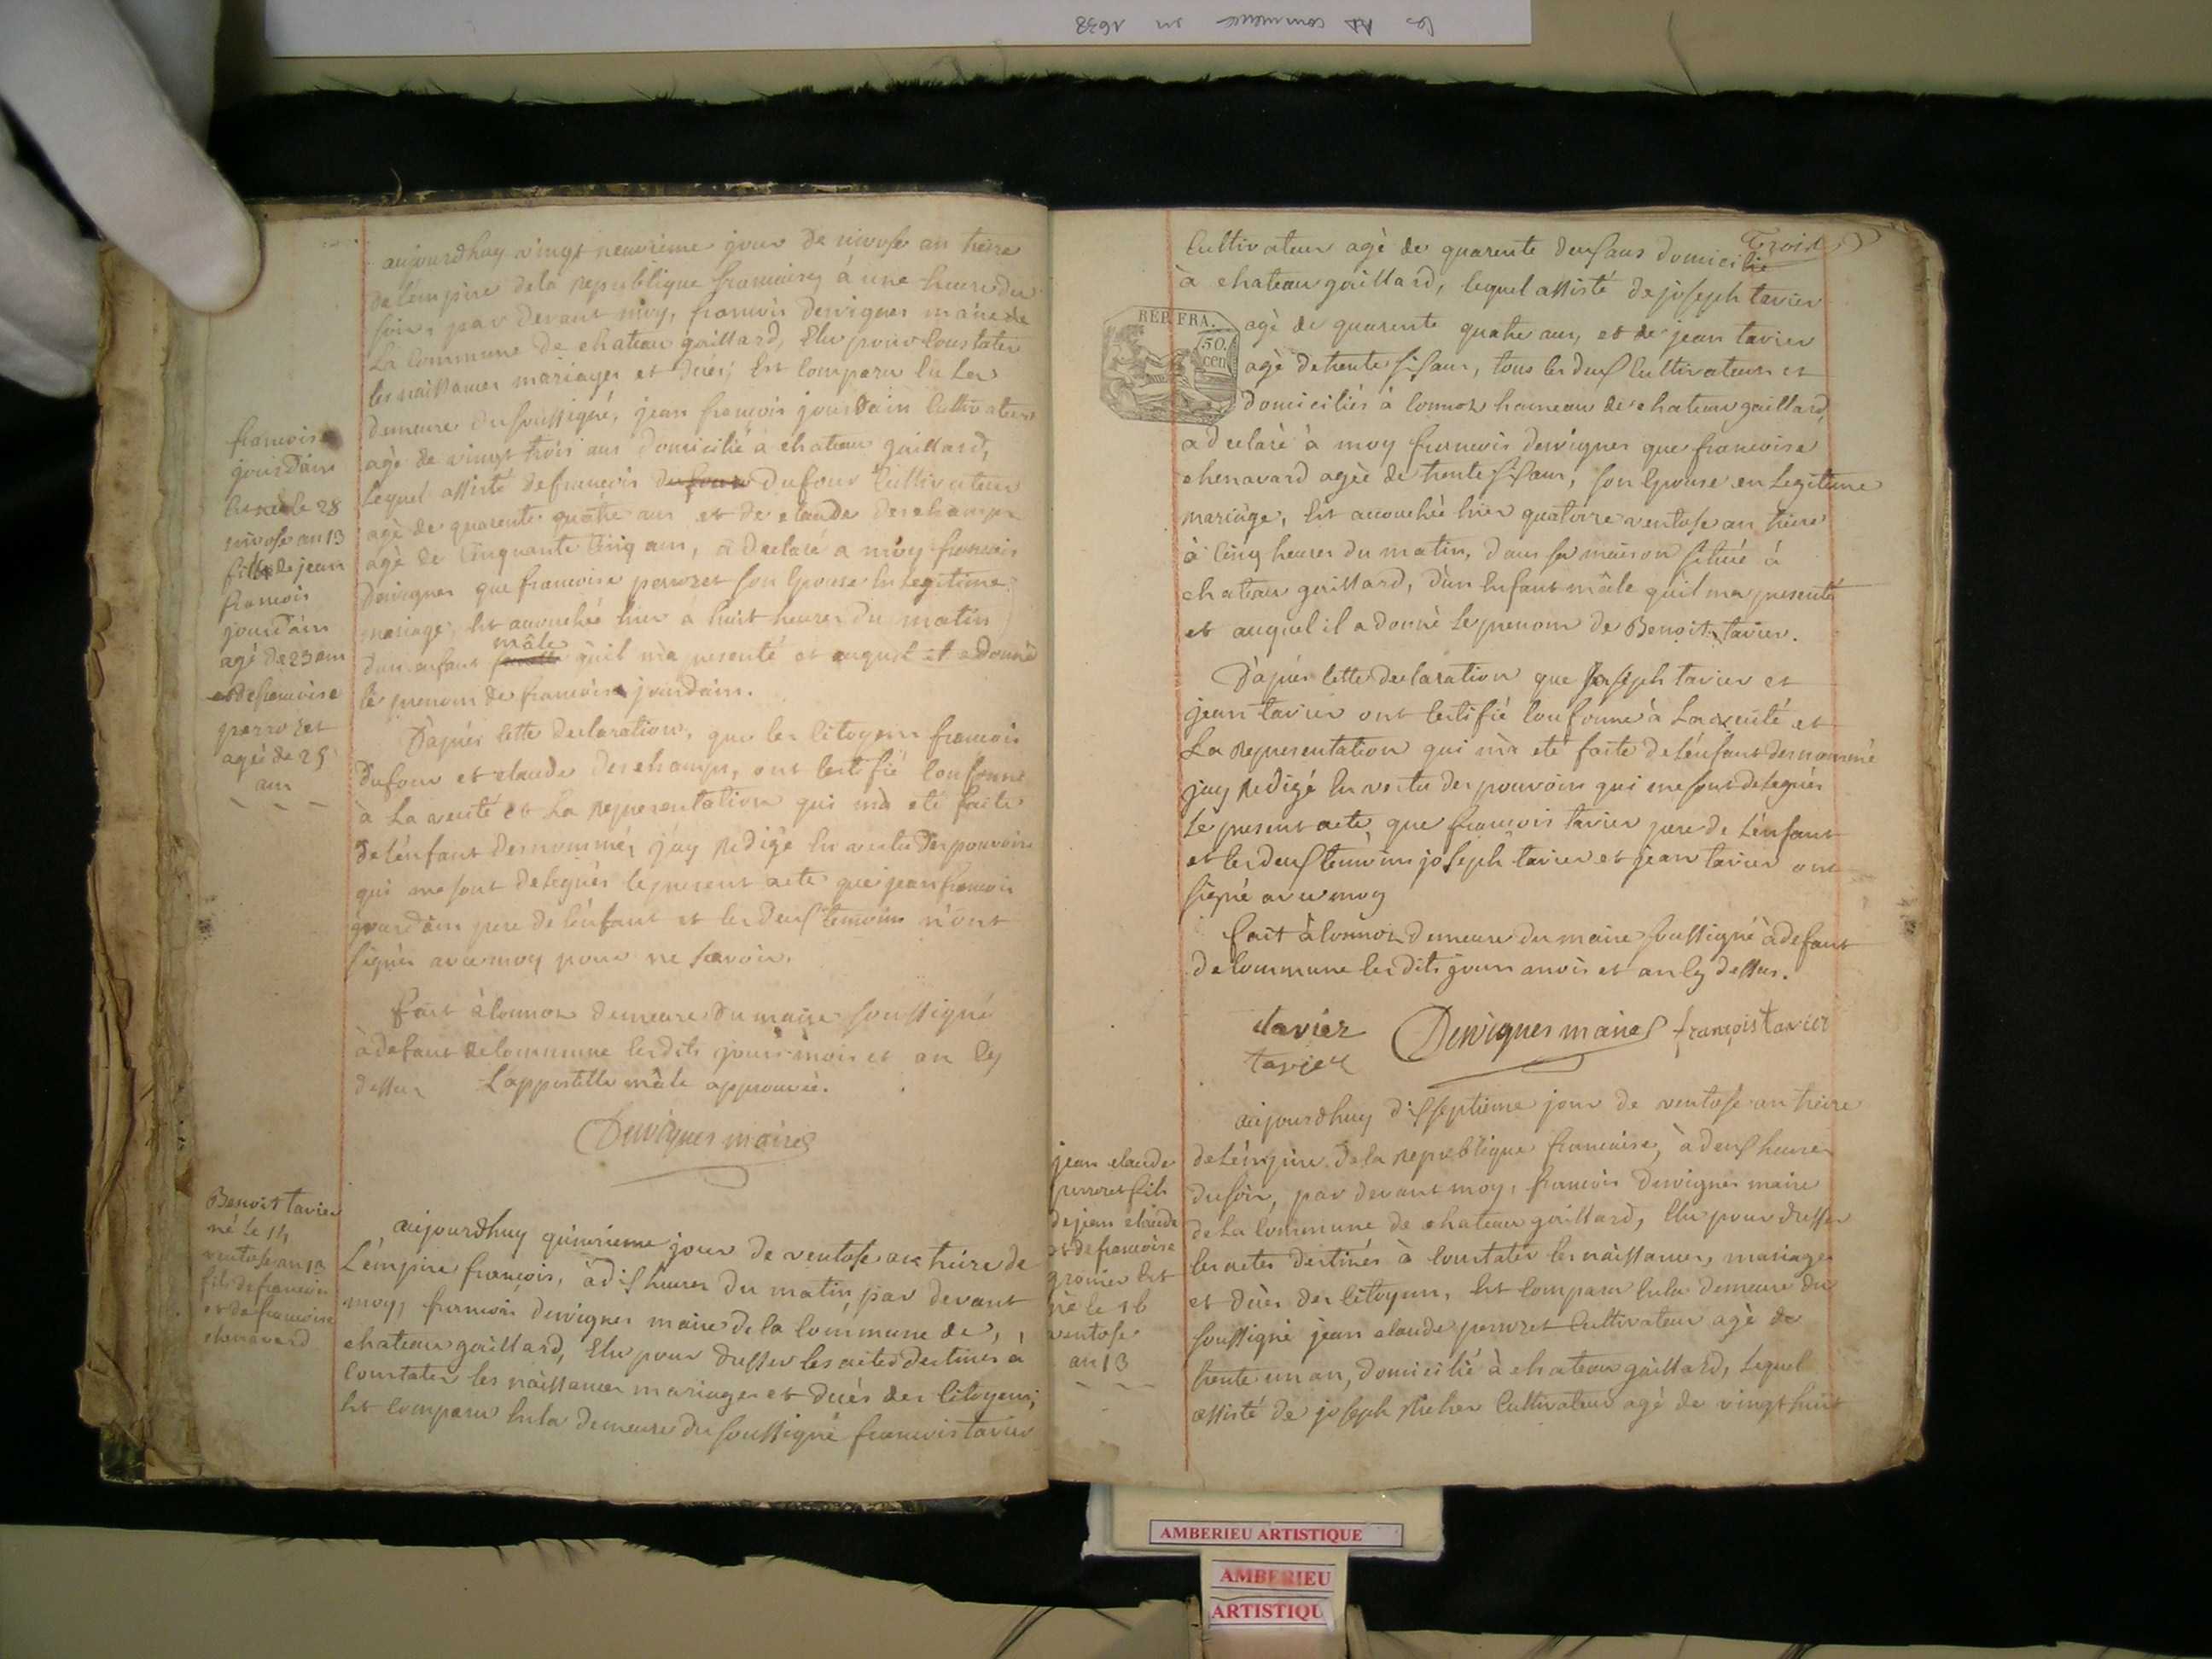 les AD commence en 1638
aujourdhuy vingt neuvieme jour de nivose an treize
de lempire dela republique francaise, à une heure du
soir, par devant moy, francois dervignes maire de
La Commune de chateau gaillard, Elu pour Constater
les naissances mariages et décés, Est Comparu En La
demeure du soussigné, jean francois jourdain Cultivateur
agè de vingt trois ans domicilié à chateau gaillard,
Lequel assisté de francois dufour Dufour Cultivateur
agè de quarente quatre ans et de claude deschamps
agè de Cinquante Cinq ans, a declaré a moy francois
dervignes que francoise perrozet son Epouse En Legitime
mariage, Est accouchée hier a huit heures du matin
mâle
dun enfant quil m'a presenté et auquel il a donné
le prenom de francois jourdain.
D'aprés Cette declaration, que les Citoyens francois
Dufour et claude deschamps, ont Certifié Conforme
à La verité et La representation qui m'à eté faite
de L'énfant denommé, j'ay redigé En vertu des pouvoirs
qui me sont delegués le present acte que jean francois
jourdain pere de L'énfant et les deux temoins n'ont
signés avec moy pour ne savoir.
fait à Connoz demeure du maire soussigné
à defaut de Commune les dits jours mois et an Cy
dessus L'appostille mâle approuvée.
Dervignes maire
francois
jourdain
Est né le 28
nivose an 13
fils de jean
francois
jourdain
agé de 23 ans
et de francoise
perrozet
agée de 25
ans
Benoit tavier
né le 14
ventose an 13
fils de francois
et de francoise
chenavard
aujourdhuy quinzieme jour de ventose an treize de
L'empire francois, à dix heures du matin, par devant
moy, francois dervignes maire de la Commune de,
chateau gaillard, Elu pour dresser les actes destinés à
Constater les naissances mariages et décés des Citoyens,
Est Comparu En la demeure du soussigné francois tavier
Trois
Cultivateur agè de quarente deux ans domicilié
à chateau gaillard, lequel assisté de joseph tavier
REP. FRA.
50.
cen
agè de quarente quatre ans, et de jean tavier
agè de trente six ans, tous les deux Cultivateurs et
domiciliés à Connoz hameau de chateau gaillard,
a declaré à moy francois dervignes que francoise
chenavard agèe de trente six ans, son Epouse en Legitime
mariage, Est accouchée hier quatorze ventose an treize
à Cinq heures du matin, dans sa maison située à
chateau gaillard, d'un Enfant mâle qu'il ma presenté
et auquel il a donné Le prenom de Benoit tavier.
D'aprés Cette declaration que joseph tavier et
jean tavier ont Certifié Conforme à La verité et
La representation qui m'a eté faite de L'énfant denommé
jay redigé En vertu des pouvoirs qui me sont delegués
Le present acte, que francois tavier pere de L'énfant
et les deux temoins joseph tavier et jean tavier ont
signé avec moy
fait à Connoz demeure du maire soussigné à defaut
de Commune les dits jours mois et an Cy dessus.
tavier Dervignes maire françois tavier
tavier
jean claude
perrozet fils
de jean claude
et de francoise
Est
né le 16
ventose
an 13
aujourdhuy dix septieme jour de ventose an treize
de L'émpire de la republique francaise, à deux heures
du soir, par devant moy, francois dervignes maire
de La Commune de chateau gaillard, Elu pour dresser
les actes destinés à Constater les naissances, mariages
et décés des Citoyens, Est Comparu En la demeure du
soussigné jean claude perrozet Cultivateur agè de
trente un an, domicilié à chateau gaillard, Lequel
assisté de joseph Cultivateur agè de vingt huit
AMBERIEU ARTISTIQUE
AMBERIEU
ARTISTIQU